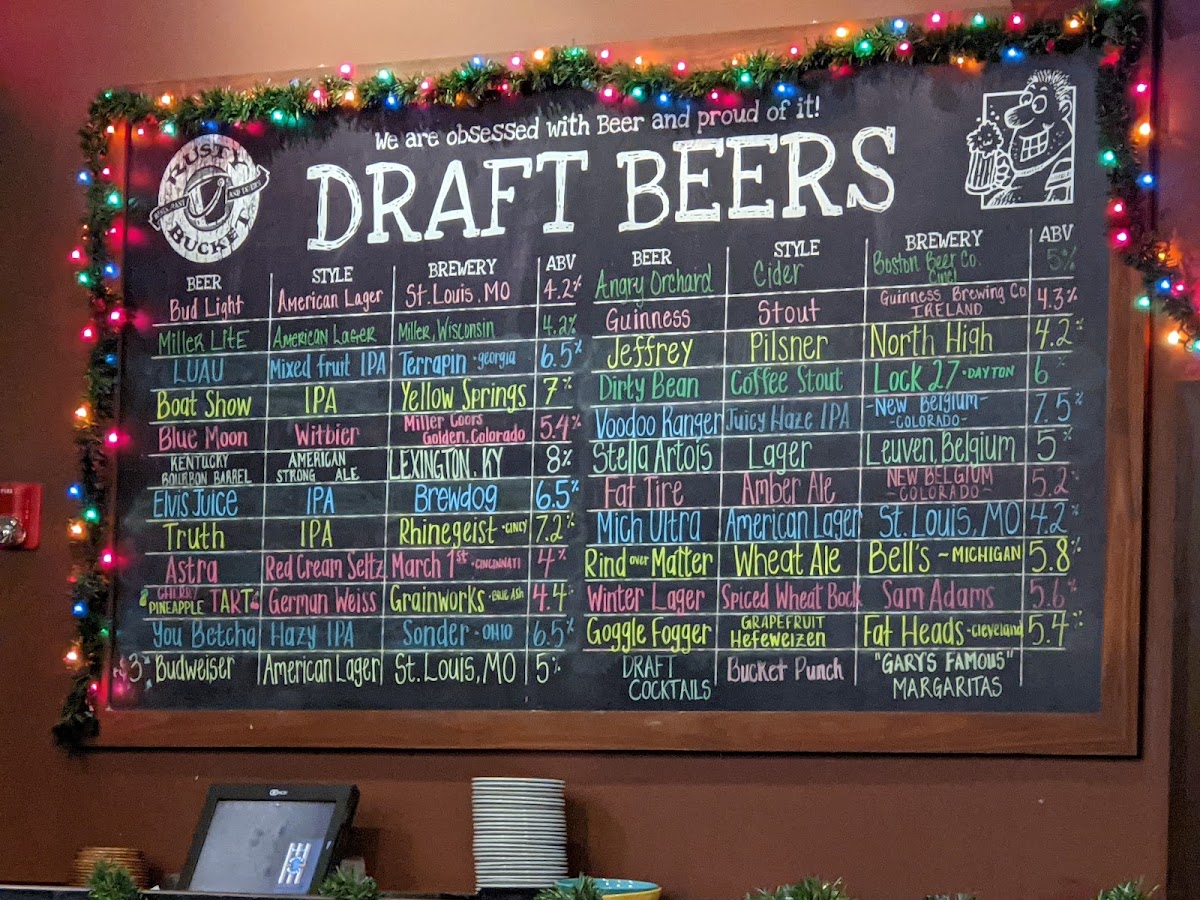 We are obsessed with Beer and proud of it!
DRAFT BEERS
RUSTY
RESTAURANT AND TAVERN
BUCKET
BEER STYLE BREWERY ABV
Bud Light American Lager St. Louis, MO 4.2%
Miller Lite American Lager Miller, Wisconsin 4.2%
LUAU Mixed fruit IPA Terrapin - georgia 6.5%
Boat Show IPA Yellow Springs 7%
Blue Moon Witbier Miller Coors Golden, Colorado 5.4%
KENTUCKY BOURBON BARREL AMERICAN STRONG ALE LEXINGTON, KY 8%
Elvis Juice IPA Brewdog 6.5%
Truth IPA Rhinegeist - CINCY 7.2%
Astra Red Cream Seltz March 1st - CINCINNATI 4%
CHERRY PINEAPPLE TART German Weiss Grainworks - BLUE ASH 4.4%
You Betcha Hazy IPA Sonder - OHIO 6.5%
$3 Budweiser American Lager St. Louis, MO 5%
BEER STYLE BREWERY ABV
Angry Orchard Cider Boston Beer Co. Cinci 5%
Guinness Stout Guinness Brewing Co IRELAND 4.3%
Jeffrey Pilsner North High 4.2%
Dirty Bean Coffee Stout Lock 27 - DAYTON 6%
Voodoo Ranger Juicy Haze IPA -New Belgium- -COLORADO- 7.5%
Stella Artois Lager Leuven, Belgium 5%
Fat Tire Amber Ale NEW BELGIUM ~COLORADO~ 5.2%
Mich Ultra American Lager St. Louis, MO 4.2%
Rind over Matter Wheat Ale Bell's ~ MICHIGAN 5.8%
Winter Lager Spiced Wheat Bock Sam Adams 5.6%
Goggle Fogger GRAPEFRUIT Hefeweizen Fat Heads - Cleveland 5.4%
DRAFT COCKTAILS Bucket Punch "GARY'S FAMOUS" MARGARITAS